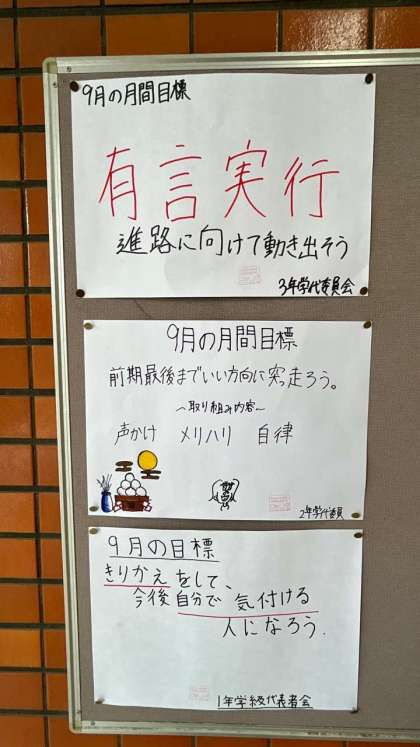 9月の月間目標
有言実行
進路に向けて動き出そう
3年学代委員会
9月の月間目標
前期最後までいい方向に突っ走ろう。
〜取り組み内容〜
声かけ メリハリ 自律
2年学代委員
9月の目標
きりかえをして、
今後自分で 気付ける
人になろう.
1年学級代表者会